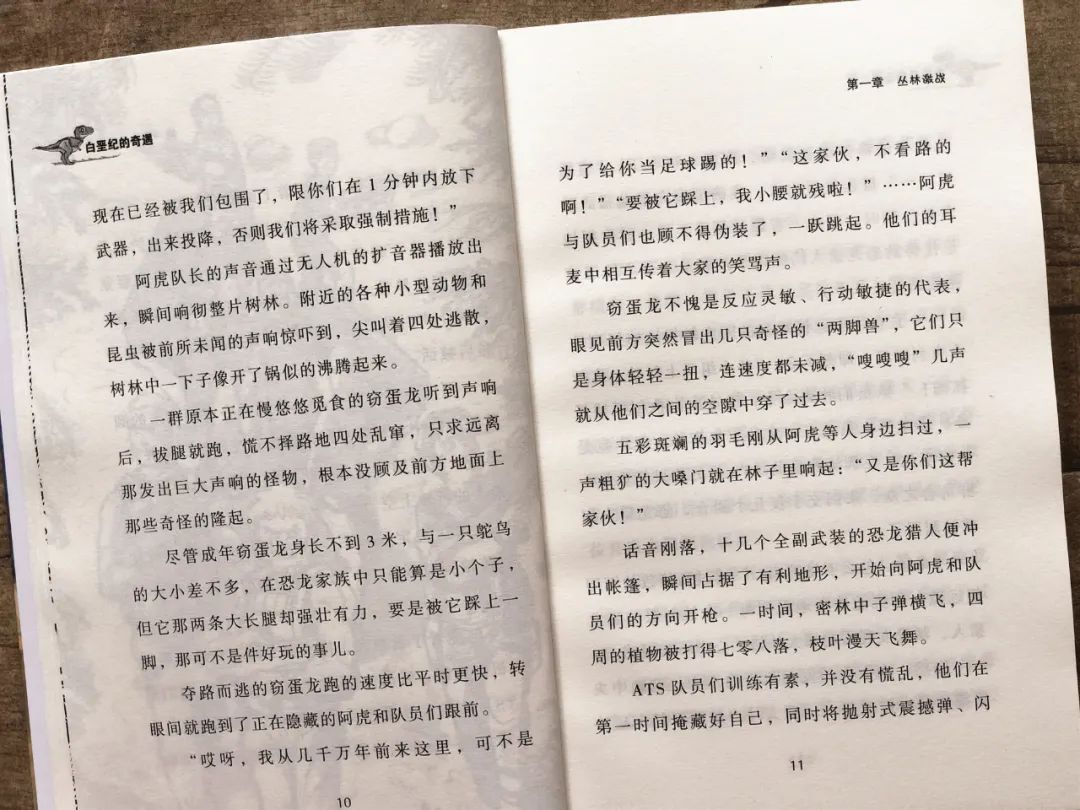 白垩纪的奇遇
现在已经被我们包围了，限你们在 1 分钟内放下
武器，出来投降，否则我们将采取强制措施！”
阿虎队长的声音通过无人机的扩音器播放出
来，瞬间响彻整片树林。附近的各种小型动物和
昆虫被前所未闻的声响惊吓到，尖叫着四处逃散，
树林中一下子像开了锅似的沸腾起来。
一群原本正在慢悠悠觅食的窃蛋龙听到声响
后，拔腿就跑，慌不择路地四处乱窜，只求远离
那发出巨大声响的怪物，根本没顾及前方地面上
那些奇怪的隆起。
尽管成年窃蛋龙身长不到 3 米，与一只鸵鸟
的大小差不多，在恐龙家族中只能算是小个子，
但它那两条大长腿却强壮有力，要是被它踩上一
脚，那可不是件好玩的事儿。
夺路而逃的窃蛋龙跑的速度比平时更快，转
眼间就跑到了正在隐藏的阿虎和队员们跟前。
“哎呀，我从几千万年前来这里，可不是
10
第一章 丛林激战
为了给你当足球踢的！”“这家伙，不看路的
啊！”“要被它踩上，我小腰就残啦！”……阿虎
与队员们也顾不得伪装了，一跃跳起。他们的耳
麦中相互传着大家的笑骂声。
窃蛋龙不愧是反应灵敏、行动敏捷的代表，
眼见前方突然冒出几只奇怪的“两脚兽”，它们只
是身体轻轻一扭，连速度都未减，“嗖嗖嗖”几声
就从他们之间的空隙中穿了过去。
五彩斑斓的羽毛刚从阿虎等人身边扫过，一
声粗犷的大嗓门就在林子里响起：“又是你们这帮
家伙！”
话音刚落，十几个全副武装的恐龙猎人便冲
出帐篷，瞬间占据了有利地形，开始向阿虎和队
员们的方向开枪。一时间，密林中子弹横飞，四
周的植物被打得七零八落，枝叶漫天飞舞。
ATS 队员们训练有素，并没有慌乱，他们在
第一时间掩藏好自己，同时将抛射式震撼弹、闪
11